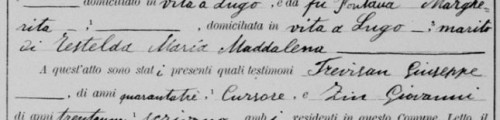 domiciliato in vita a Lugo, e da fu Fontana Marghe-
rita -:- , domiciliata in vita a Lugo -: marito
di Testolda Maria Maddalena
A quest'atto sono stati presenti quali testimoni Trevisan Giuseppe
, di anni quarantatre : Cursore, e Zin Giovanni
di anni trentanni scrivano, ambi residenti in questo Comune. Letto il